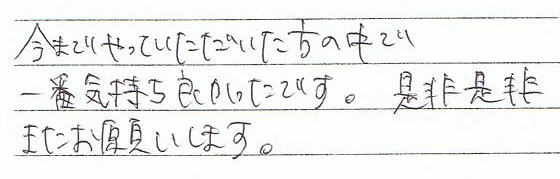 今までやっていただいた方の中で
一番気持ち良かったです。是非是非
またお願いします。